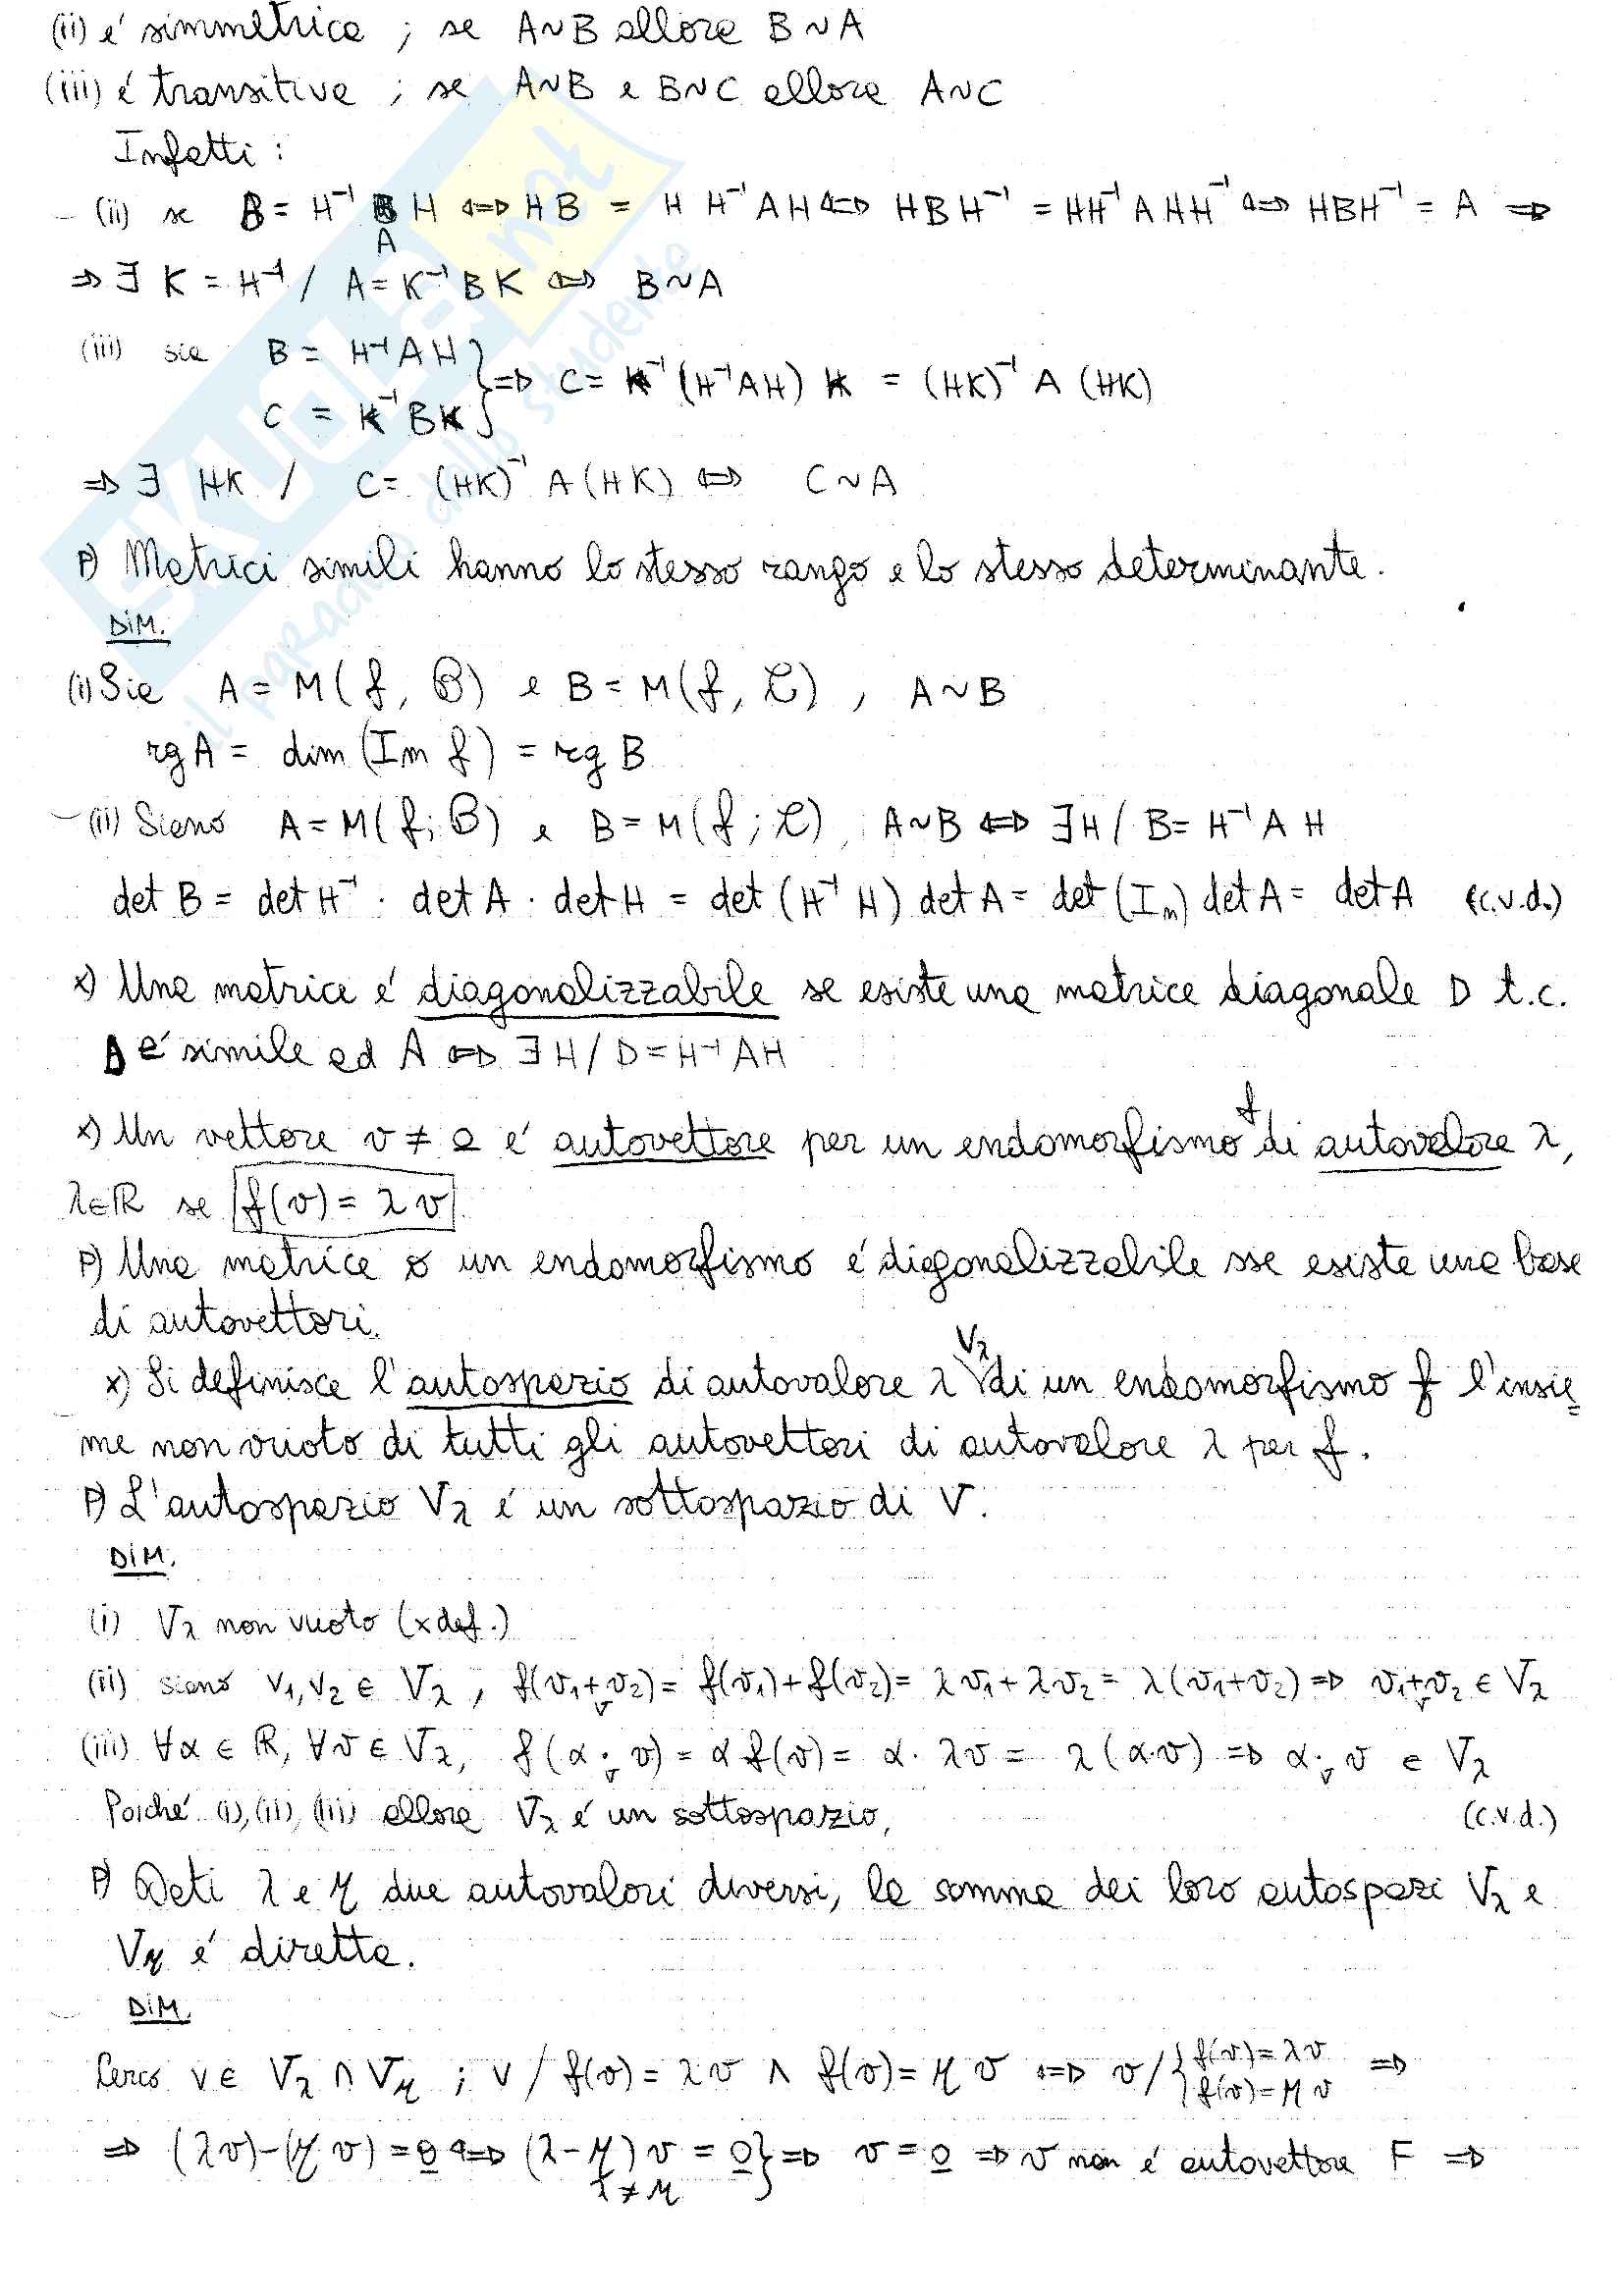 (ii) é simmetrica ; se A∼B allora B∼A
(iii) é transitiva ; se A∼B e B∼C allora A∼C
Infatti :
- (ii) se B = H⁻¹ A H ⇔ HB = H H⁻¹ A H ⇔ HBH⁻¹ = HH⁻¹ A HH⁻¹ ⇔ HBH⁻¹ = A ⇒
⇒ ∃ K = H⁻¹ / A = K⁻¹ B K ⇔ B∼A
(iii) sia B = H⁻¹ A H } ⇒ C = K⁻¹ (H⁻¹AH) K = (HK)⁻¹ A (HK)
C = K⁻¹ B K
⇒ ∃ HK / C = (HK)⁻¹ A (HK) ⇔ C∼A
P) Matrici simili hanno lo stesso rango e lo stesso determinante.
DIM.
(i) Sia A = M(f, ℬ) e B = M(f, 𝒞) , A∼B
rg A = dim (Im f) = rg B
- (ii) Siano A = M(f; ℬ) e B = M(f; 𝒞), A∼B ⇔ ∃H / B = H⁻¹ A H
det B = det H⁻¹ · det A · det H = det (H⁻¹ H) det A = det (Iₙ) det A = det A (c.v.d.)
x) Una matrice é diagonalizzabile se esiste una matrice diagonale D t.c.
D é simile ad A ⇔ ∃ H / D = H⁻¹ AH
x) Un vettore v ≠ 0 é autovettore per un endomorfismo f di autovalore λ,
λ∈ℝ se f(v) = λ v
P) Una matrice o un endomorfismo é diagonalizzabile sse esiste una base
di autovettori.
x) Si definisce l'autospazio di autovalore λ V_λ di un endomorfismo f l'insie=
me non vuoto di tutti gli autovettori di autovalore λ per f.
P) L'autospazio V_λ é un sottospazio di V.
DIM.
(i) V_λ non vuoto (x def.)
(ii) siano v₁,v₂ ∈ V_λ , f(v₁+v₂) = f(v₁)+f(v₂) = λ v₁+λ v₂ = λ(v₁+v₂) ⇒ v₁+v₂ ∈ V_λ
(iii) ∀α ∈ ℝ, ∀v ∈ V_λ, f(α · v) = α f(v) = α · λv = λ(α·v) ⇒ α · v ∈ V_λ
Poiché (i),(ii),(iii) allora V_λ é un sottospazio, (c.v.d.)
P) Dati λ e μ due autovalori diversi, la somma dei loro autospazi V_λ e
V_μ é diretta.
DIM.
Cerco v ∈ V_λ ∩ V_μ ; v / f(v) = λ v ∧ f(v) = μ v ⇔ v / { f(v) = λv f(v) = μ v ⇒
⇒ (λv)-(μ v) = 0 ⇔ (λ-μ) v = 0 λ≠μ } ⇒ v = 0 ⇒ v non é autovettore F ⇒
SKUOLA.net
il paradiso dello studente